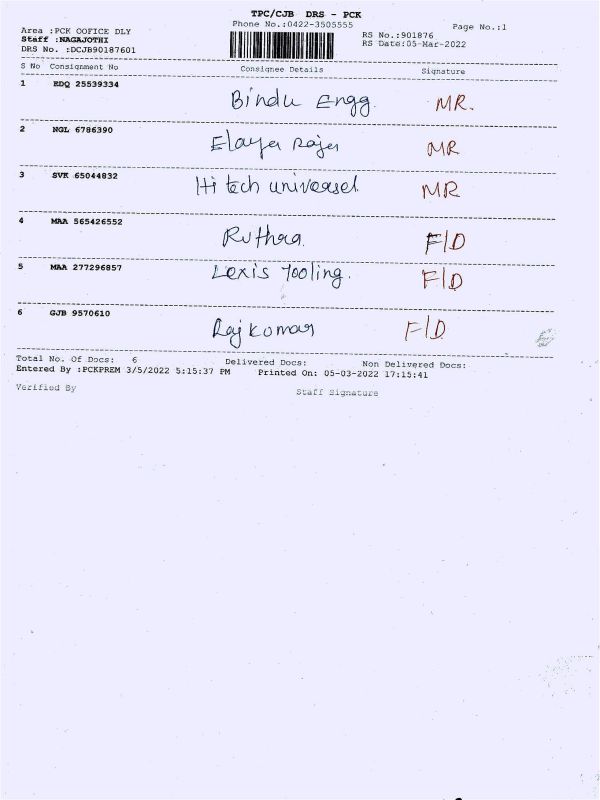 TPC/CJB DRS - PCK
Phone No.:0422-3505555
Page No.:1
Area :PCK OOFICE DLY
Staff :NAGAJOTHI
DRS No. :DCJB90187601
RS No.:901876
RS Date:05-Mar-2022
S No Consignment No Consignee Details Signature
1 EDQ 25539334 Bindu Engg. MR.
2 NGL 6786390 Elaya Rajan MR
3 SVK 65044832 Hi tech universel MR
4 MAA 565426552 Ruthra. F/D
5 MAA 277296857 Lexis Tooling. F/D
6 GJB 9570610 Rajkumar F/D
Total No. Of Docs: 6 Delivered Docs: Non Delivered Docs:
Entered By :PCKPREM 3/5/2022 5:15:37 PM Printed On: 05-03-2022 17:15:41
Verified By Staff Signature